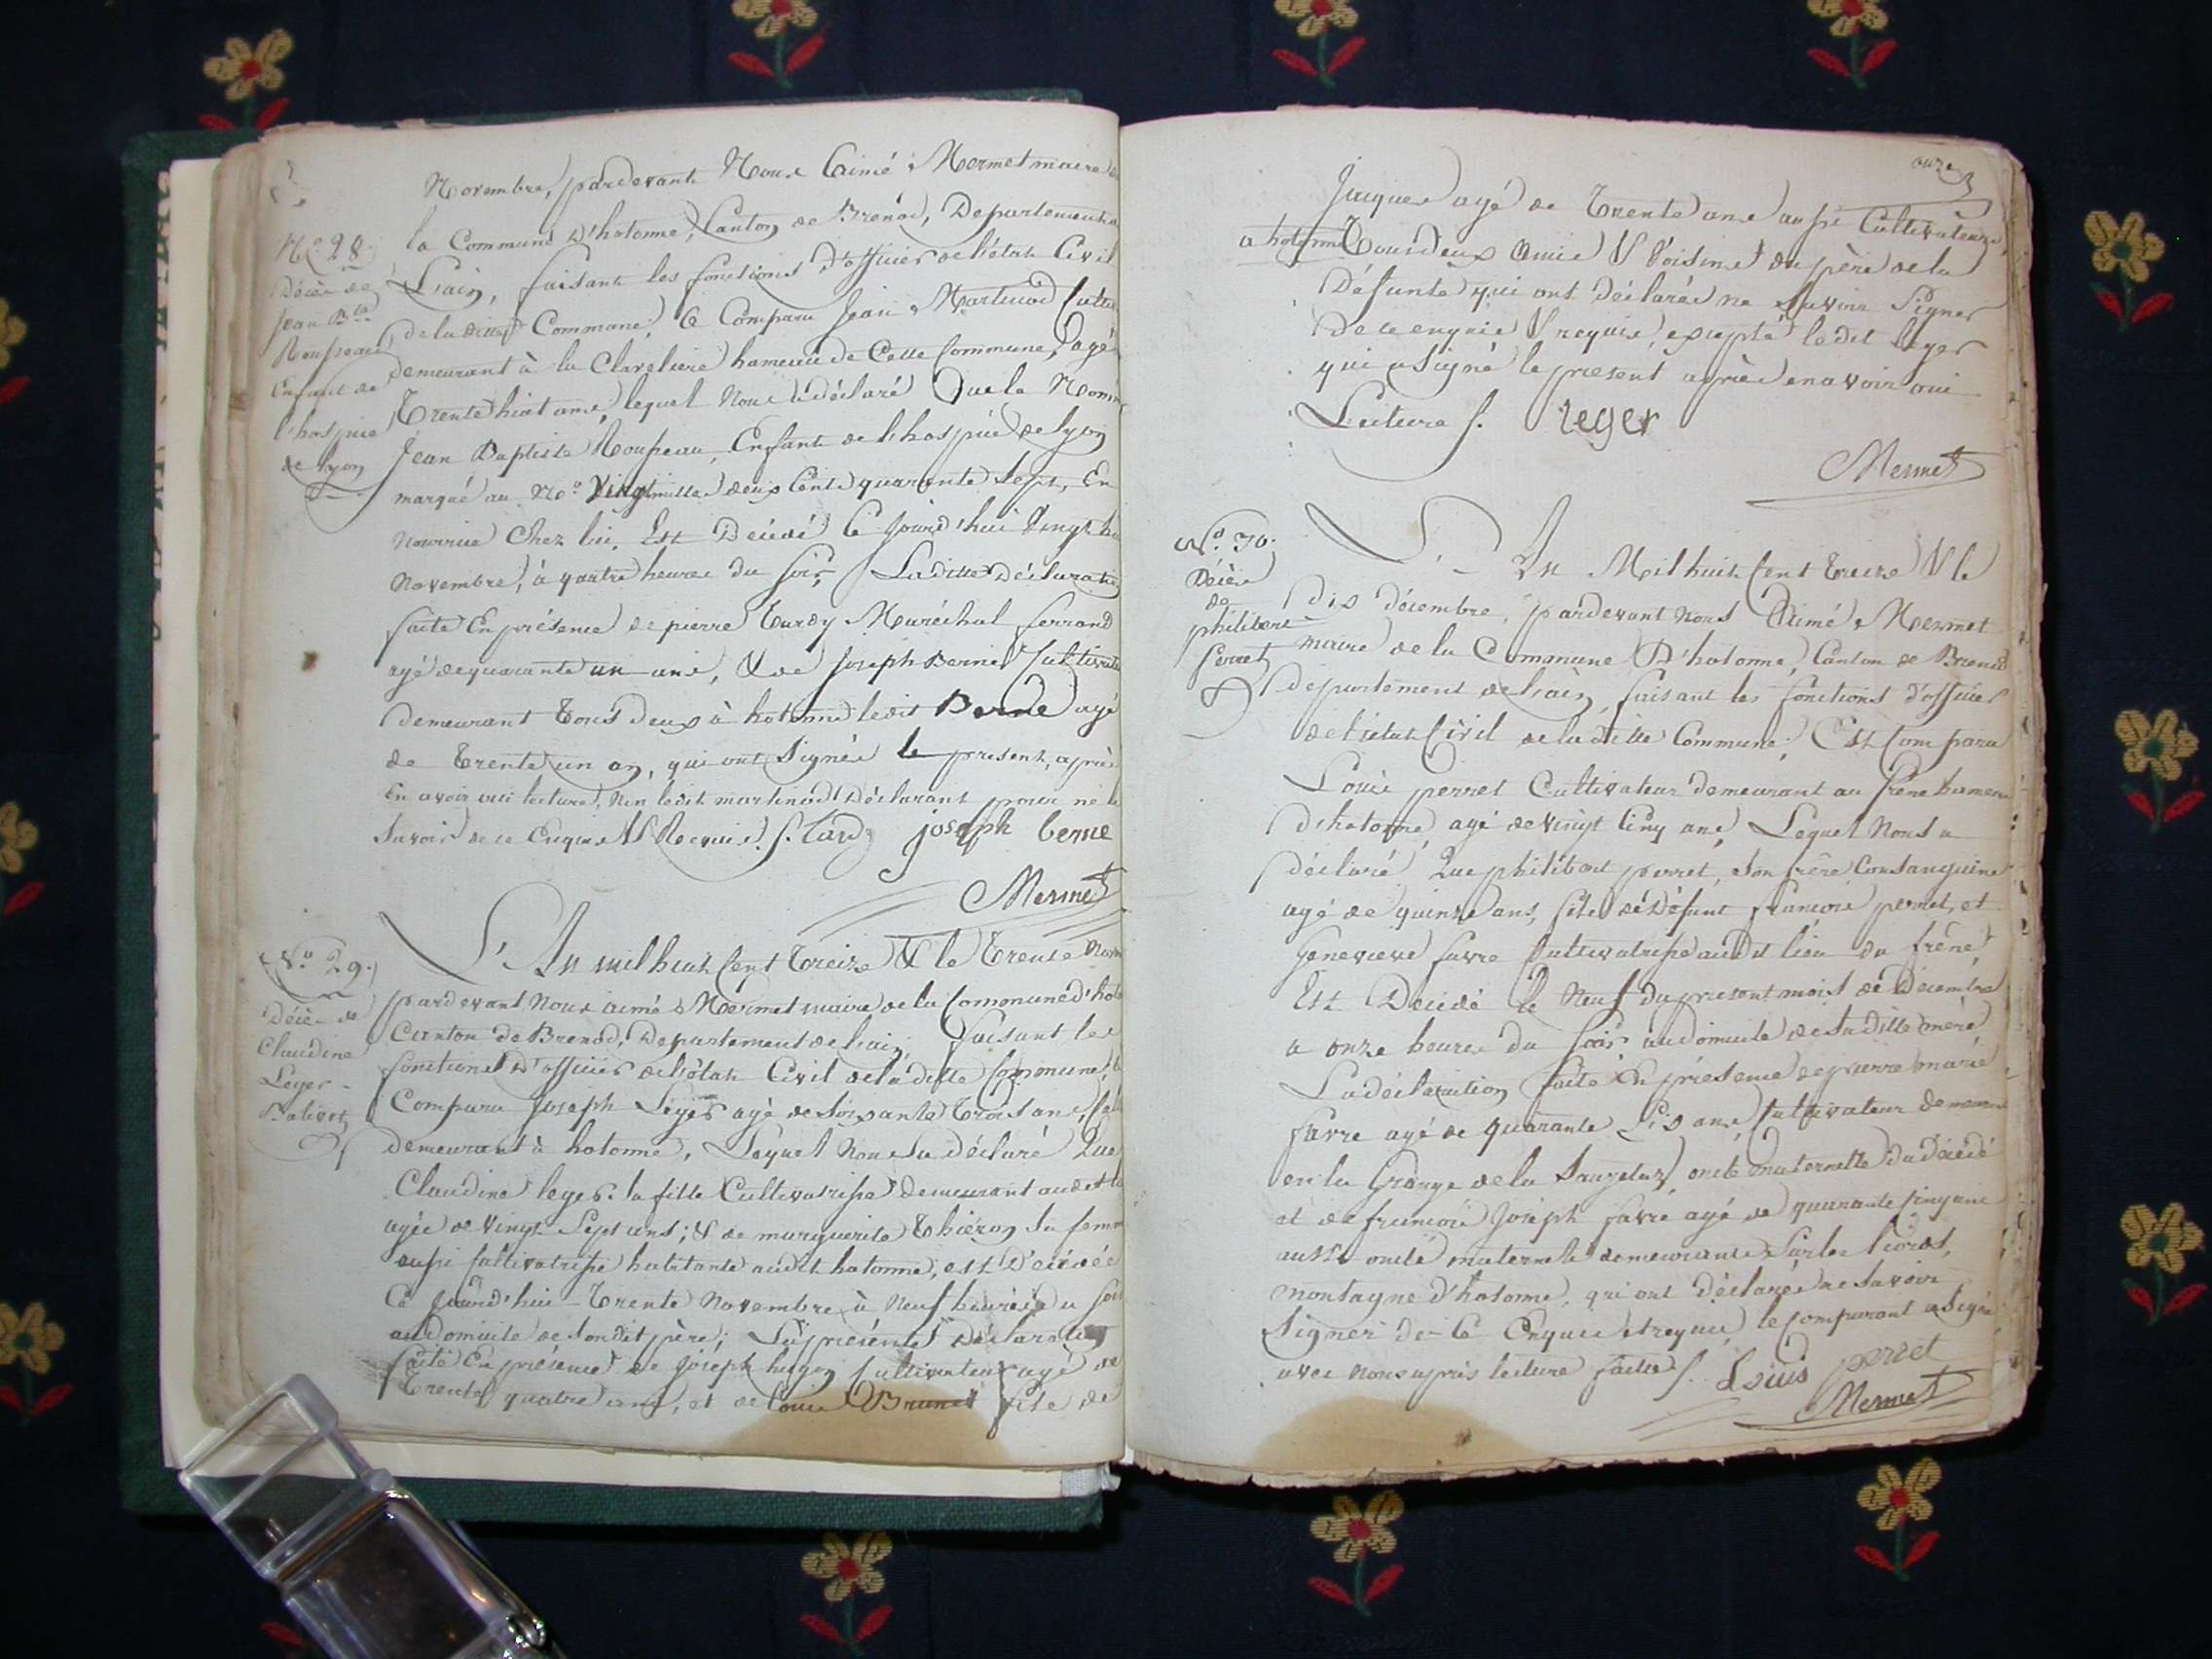 Novembre, pardevant Nous Aimé Mermet maire
la Commune d'hotonne, Canton de Brenod, Departement
L'ain, faisant les fonctions d'officier de l'état Civil
de la ditte Commune, a Comparu Jean Martinod
demeurant à la Claveliere hameau de Cette Commune, agé
Trente huit ans, lequel Nous a déclaré Que le
Jean Baptiste Rousseau, Enfant de l'hospice de lyon
marqué au No. Vingt mille deux Cents quarante Sept, En
Nourrice Chez lui, Est Décédé Ce Jourd'hui Vingt
Novembre, à quatre heures du Soir, Laditte Déclaration
faite En présence de pierre Tardy Maréchal ferrand
agé de quarante un ans, & de Joseph Berne
demeurant Tous deux à hotonne ledit Berne agé
de Trente un an, qui ont Signés le present, après
En avoir oui lecture, Non ledit martinod Déclarant pour ne le
Savoir de ce Enquis & Requis f. tardy joseph berne
Mermet
No. 28.
Décès de
Jean Bte
Rousseau
Enfant de
l'hospice
de lyon
L'An mil huit Cent Treize & le Trente
pardevant Nous aimé Mermet maire de la Commune
Canton de Brenod, Departement de l'ain, faisant les
fonctions d'officier de l'état Civil de la ditte Commune,
Comparu Joseph Léger agé de Soixante Trois ans,
demeurant à hotonne, Lequel Nous a déclaré Que
Claudine leger la fille Cultivatrisse demeurant
agée de Vingt Sept ans; & de marguerite Thiéron Sa
aussi Cultivatrisse habitante audit hotonne, est Décédée
Ce Jourd'hui Trente Novembre à Neuf heures du
au Domicile de Sondit père; La présente Déclaration
faite En présence de Joseph hugon Cultivateur agé de
Trente quatre ans, et de Louis Brunet fils de
No. 29.
Décès de
Claudine
Leger
onze
Jacques agé de Trente ans aussi Cultivateurs
a hotonne Tous deux Amis & Voisins du père de la
Défunte qui ont Déclarés ne Savoir Signer
De ce enquis & requis, excepté ledit leger
qui a Signé le present après en avoir oui
Lecture f. leger
Mermet
No. 30.
Décès
de
philibert
perret
L'An Mil huit Cent Treize & le
dix décembre, pardevant Nous Aimé Mermet
maire de la Commune D'hotonne, Canton de Brenod
Département de l'ain, faisant les fonctions d'officier
de l'état Civil de la ditte Commune; Est Comparu
Louis perret Cultivateur demeurant au frêne hameau
d'hotonne, agé de vingt Cinq ans, Lequel Nous a
déclaré Que philibert perret, Son frère Consanguins
agé de quinze ans, fils de Défunt francois perret, et
Genevieve favre Cultivatrisse audit lieu du frêne,
Est Décédé le Neuf du present mois de Décembre
a onze heures du Soir au domicile de Saditte mère
La déclaration faite En présence de pierre marie
favre agé de quarante Six ans, Cultivateur demeurant
en la Grange de la oncle maternelle du décédé
et de francois Joseph favre agé de quarante Cinq ans
aussi oncle maternelle demeurante Sur les
montagne d'hotonne, qui ont déclarés ne Savoir
Signer de Ce Enquis et requis, le Comparant a Signé
avec Nous après lecture faitte f. Louis perret
Mermet